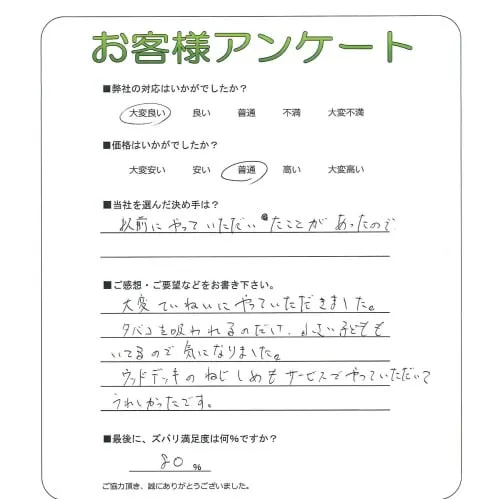 お客様アンケート
■弊社の対応はいかがでしたか?
大変良い 良い 普通 不満 大変不満
■価格はいかがでしたか?
大変安い 安い 普通 高い 大変高い
■当社を選んだ決め手は?
以前にやっていただいたことがあったので
■ご感想・ご要望などをお書き下さい。
大変ていねいにやっていただきました。
タバコを吸われるのだけ、小さい子どもも
いてるので気になりました。
ウッドデッキのねじしめもサービスでやっていただいて
うれしかったです。
■最後に、ズバリ満足度は何%ですか?
80 %
ご協力頂き、誠にありがとうございました。